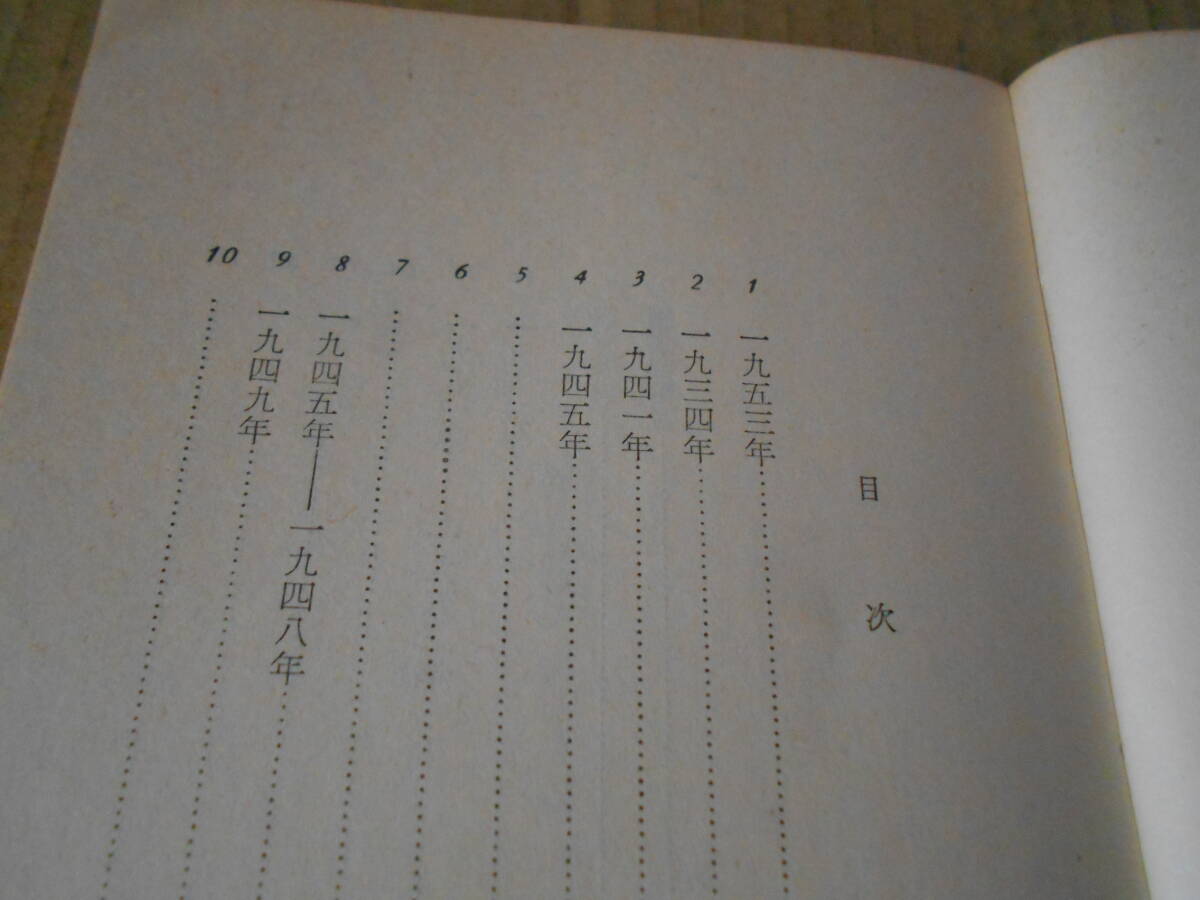 目次
1 一九五三年……
2 一九三四年……
3 一九四一年……
4 一九四五年……
5 ……
6 ……
7 ……
8 一九四五年——一九四八年……
9 一九四九年……
10 ……